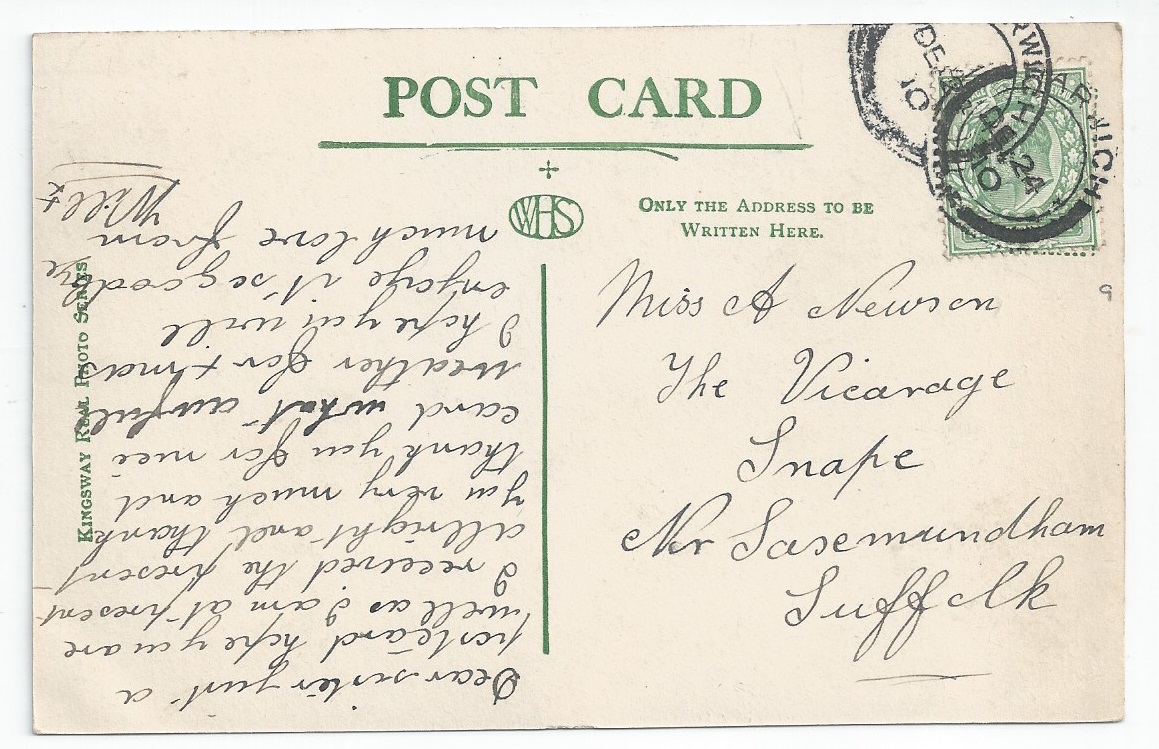 POST CARD
WHS
ONLY THE ADDRESS TO BE
WRITTEN HERE.
HARWICH
DE 24
10
RWICH
DE
10
Miss A Newson
The Vicarage
Snape
Nr Saxemundham
Suffolk
9
KINGSWAY REAL PHOTO SERIES
Dear sister just a
postcard hope you are
well as I am at present
I received the present
allright and thank
you very much and
thank you for nice
card what awful
weather for xmas
I hope you will
enjoye it so goodbye
much love from
Will x